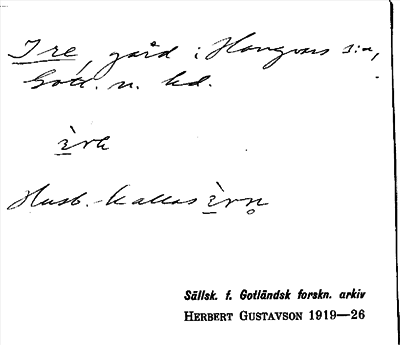 Ire, gård i Hangvars s:n,
Gotl. n. hd.
ìrɐ
Husb. kallas ìrn̥
Sällsk. f. Gotländsk forskn. arkiv
HERBERT GUSTAVSON 1919—26